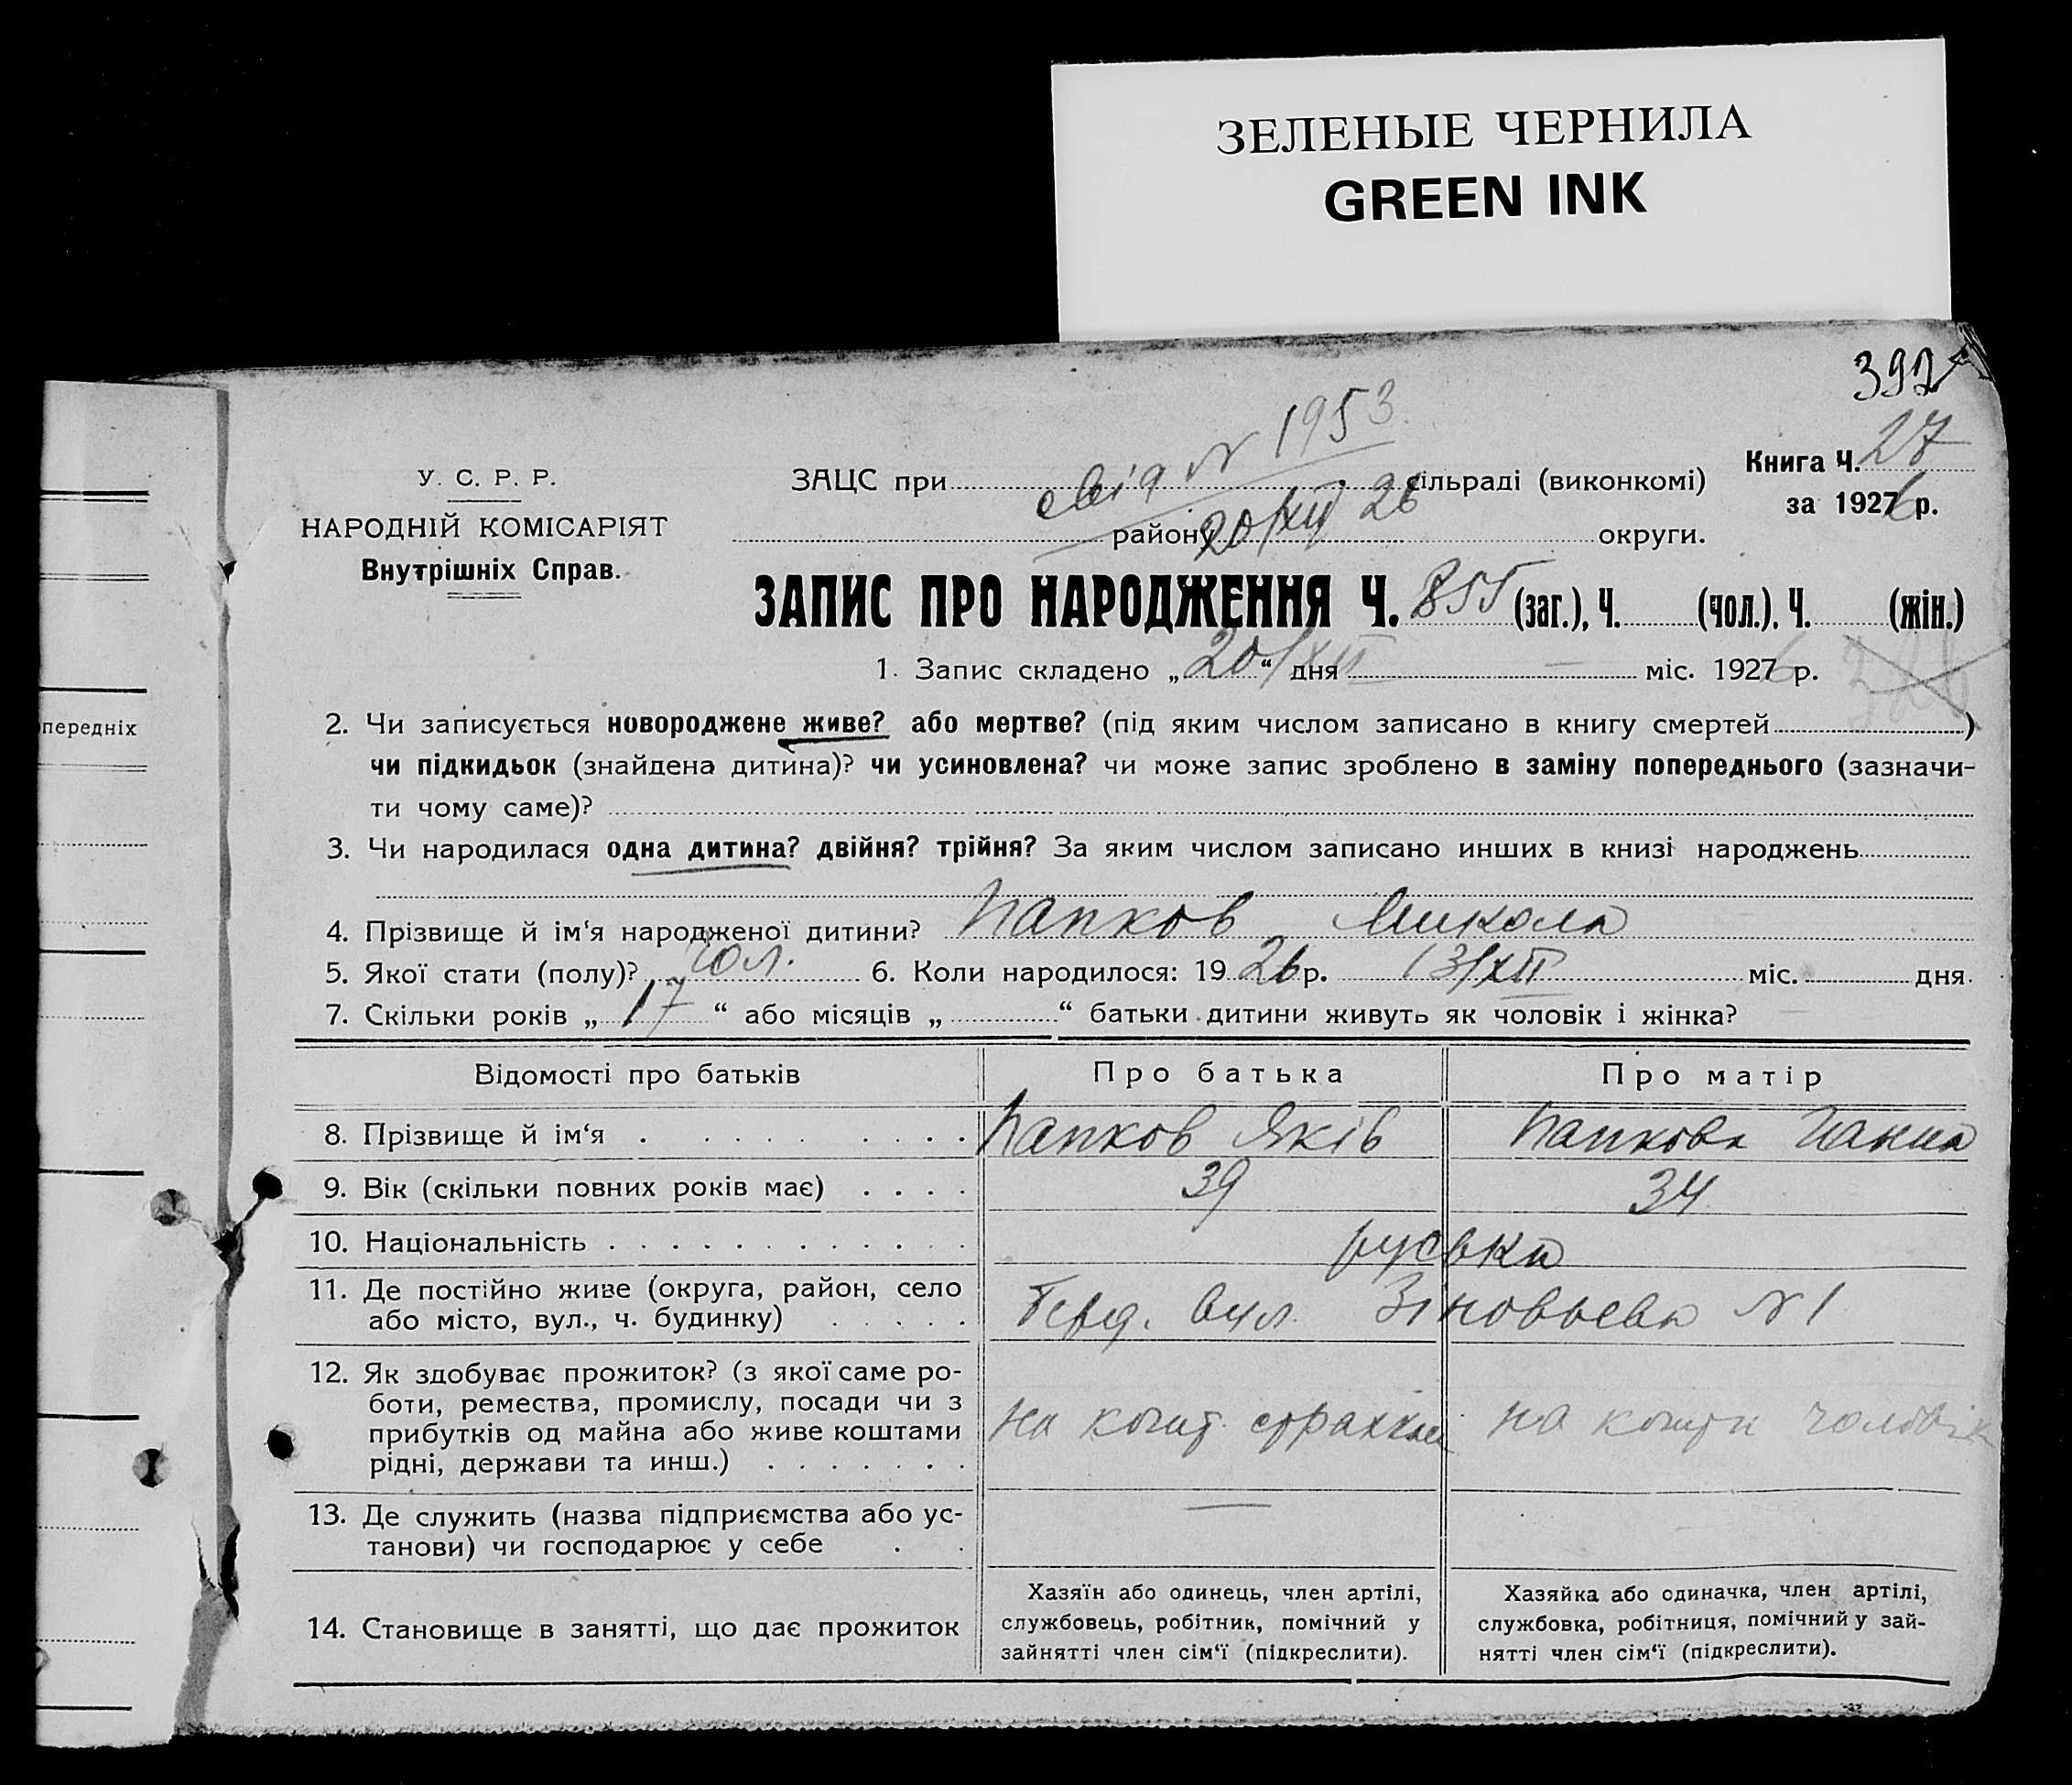 ЗЕЛЕНЫЕ ЧЕРНИЛА
GREEN INK
392
У. С. Р. Р.
НАРОДНІЙ КОМІСАРІЯТ
Внутрішніх Справ.
свід N 1953
20/XII 26
ЗАЦС при сільраді (виконкомі)
району округи.
Книга Ч. 27
за 1926 р.
ЗАПИС ПРО НАРОДЖЕННЯ Ч. 855 (заг.), Ч. (чол.), Ч. (жін.)
1. Запис складено „20/XII“ дня міс. 1926 р.
2. Чи записується новороджене живе? або мертве? (під яким числом записано в книгу смертей )
чи підкидьок (знайдена дитина)? чи усиновлена? чи може запис зроблено в заміну попереднього (зазначи-
ти чому саме)?
3. Чи народилася одна дитина? двійня? трійня? За яким числом записано инших в книзі народжень
4. Прізвище й ім‘я народженої дитини? Папков Микола
5. Якої стати (полу)? чол. 6. Коли народилося: 1926 р. 13/XII міс. дня
7. Скільки років „ 17 “ або місяців „ “ батьки дитини живуть як чоловік і жінка?
Відомості про батьків Про батька Про матір
8. Прізвище й ім‘я Папков Яків Папкова Ганна
9. Вік (скільки повних років має) 39 34
10. Національність руська
11. Де постійно живе (округа, район, село
або місто, вул., ч. будинку) вул. Зіновьева N 1
12. Як здобуває прожиток? (з якої саме ро-
боти, ремества, промислу, посади чи з
прибутків од майна або живе коштами
рідні, держави та инш.)
на кошт. на кошти чоловік
13. Де служить (назва підприємства або ус-
танови) чи господарює у себе
14. Становище в занятті, що дає прожиток
Хазяїн або одинець, член артілі,
службовець, робітник, помічний у
зайнятті член сім‘ї (підкреслити).
Хазяйка або одиначка, член артілі,
службовка, робітниця, помічний у зай-
нятті член сім‘ї (підкреслити).
передніх